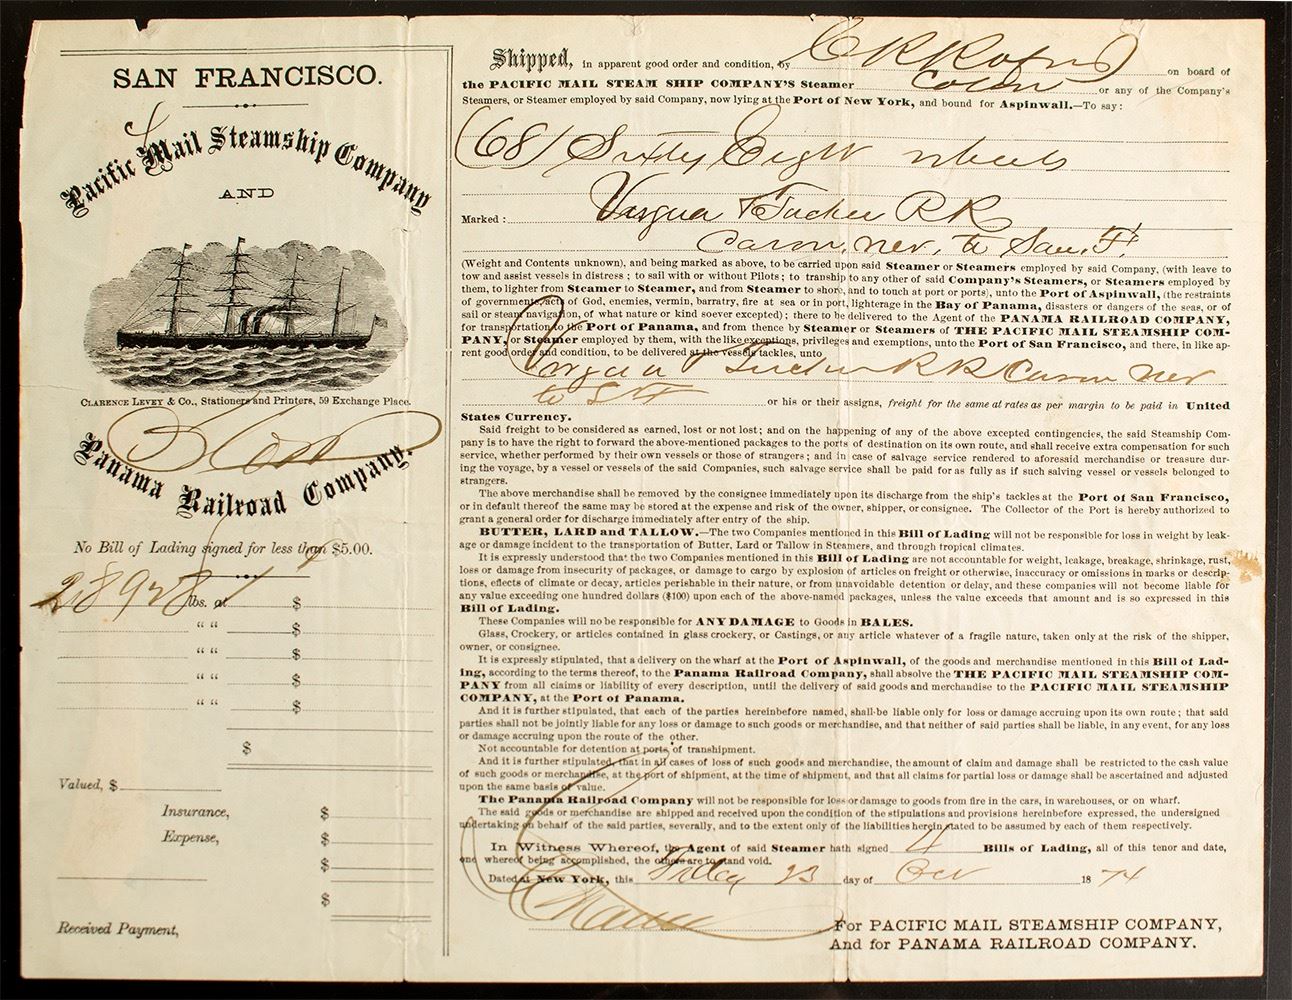 SAN FRANCISCO.
Pacific Mail Steamship Company
AND
CLARENCE LEVEY & Co., Stationers and Printers, 59 Exchange Place.
Panama Railroad Company.
No Bill of Lading signed for less than $5.00.
28928 lbs. at $
“ “ $
“ “ $
“ “ $
“ “ $
$
Valued, $
Insurance, $
Expense, $
$
$
Received Payment,
Shipped, in apparent good order and condition, by on board of
the PACIFIC MAIL STEAM SHIP COMPANY'S Steamer Colon or any of the Company's
Steamers, or Steamer employed by said Company, now lying at the Port of New York, and bound for Aspinwall.—To say:
(68) Sixty Eight wheels
Marked: Virginia & Truckee RR
Carson, Nev, to San. F.
(Weight and Contents unknown), and being marked as above, to be carried upon said Steamer or Steamers employed by said Company, (with leave to
tow and assist vessels in distress; to sail with or without Pilots; to tranship to any other of said Company's Steamers, or Steamers employed by
them, to lighter from Steamer to Steamer, and from Steamer to shore, and to touch at port or ports), unto the Port of Aspinwall, (the restraints
of governments, acts of God, enemies, vermin, barratry, fire at sea or in port, lighterage in the Bay of Panama, disasters or dangers of the seas, or of
sail or steam navigation, of what nature or kind soever excepted); there to be delivered to the Agent of the PANAMA RAILROAD COMPANY,
for transportation to the Port of Panama, and from thence by Steamer or Steamers of THE PACIFIC MAIL STEAMSHIP COM-
PANY, or Steamer employed by them, with the like exceptions, privileges and exemptions, unto the Port of San Francisco, and there, in like ap-
rent good order and condition, to be delivered at the vessels tackles, unto
Virginia & Truckee RR Carson Nev
to S F or his or their assigns, freight for the same at rates as per margin to be paid in United
States Currency.
Said freight to be considered as earned, lost or not lost; and on the happening of any of the above excepted contingencies, the said Steamship Com-
pany is to have the right to forward the above-mentioned packages to the ports of destination on its own route, and shall receive extra compensation for such
service, whether performed by their own vessels or those of strangers; and in case of salvage service rendered to aforesaid merchandise or treasure dur-
ing the voyage, by a vessel or vessels of the said Companies, such salvage service shall be paid for as fully as if such salving vessel or vessels belonged to
strangers.
The above merchandise shall be removed by the consignee immediately upon its discharge from the ship's tackles at the Port of San Francisco,
or in default thereof the same may be stored at the expense and risk of the owner, shipper, or consignee. The Collector of the Port is hereby authorized to
grant a general order for discharge immediately after entry of the ship.
BUTTER, LARD and TALLOW.—The two Companies mentioned in this Bill of Lading will not be responsible for loss in weight by leak-
age or damage incident to the transportation of Butter, Lard or Tallow in Steamers, and through tropical climates.
It is expressly understood that the two Companies mentioned in this Bill of Lading are not accountable for weight, leakage, breakage, shrinkage, rust,
loss or damage from insecurity of packages, or damage to cargo by explosion of articles on freight or otherwise, inaccuracy or omissions in marks or descrip-
tions, effects of climate or decay, articles perishable in their nature, or from unavoidable detention or delay, and these companies will not become liable for
any value exceeding one hundred dollars ($100) upon each of the above-named packages, unless the value exceeds that amount and is so expressed in this
Bill of Lading.
These Companies will no be responsible for ANY DAMAGE to Goods in BALES.
Glass, Crockery, or articles contained in glass crockery, or Castings, or any article whatever of a fragile nature, taken only at the risk of the shipper,
owner, or consignee.
It is expressly stipulated, that a delivery on the wharf at the Port of Aspinwall, of the goods and merchandise mentioned in this Bill of Lad-
ing, according to the terms thereof, to the Panama Railroad Company, shall absolve the THE PACIFIC MAIL STEAMSHIP COM-
PANY from all claims or liability of every description, until the delivery of said goods and merchandise to the PACIFIC MAIL STEAMSHIP
COMPANY, at the Port of Panama.
And it is further stipulated, that each of the parties hereinbefore named, shall be liable only for loss or damage accruing upon its own route; that said
parties shall not be jointly liable for any loss or damage to such goods or merchandise, and that neither of said parties shall be liable, in any event, for any loss
or damage accruing upon the route of the other.
Not accountable for detention at ports, of transhipment.
And it is further stipulated, that in all cases of loss of such goods and merchandise, the amount of claim and damage shall be restricted to the cash value
of such goods or merchandise, at the port of shipment, at the time of shipment, and that all claims for partial loss or damage shall be ascertained and adjusted
upon the same basis of value.
The Panama Railroad Company will not be responsible for loss or damage to goods from fire in the cars, in warehouses, or on wharf.
The said goods or merchandise are shipped and received upon the condition of the stipulations and provisions hereinbefore expressed, the undersigned
undertaking on behalf of the said parties, severally, and to the extent only of the liabilities herein stated to be assumed by each of them respectively.
In Witness Whereof, the Agent of said Steamer hath signed 4 Bills of Lading, all of this tenor and date,
one whereof being accomplished, the others are to stand void.
Dated at New York, this Friday 23 day of Oct 1874
For PACIFIC MAIL STEAMSHIP COMPANY,
And for PANAMA RAILROAD COMPANY.